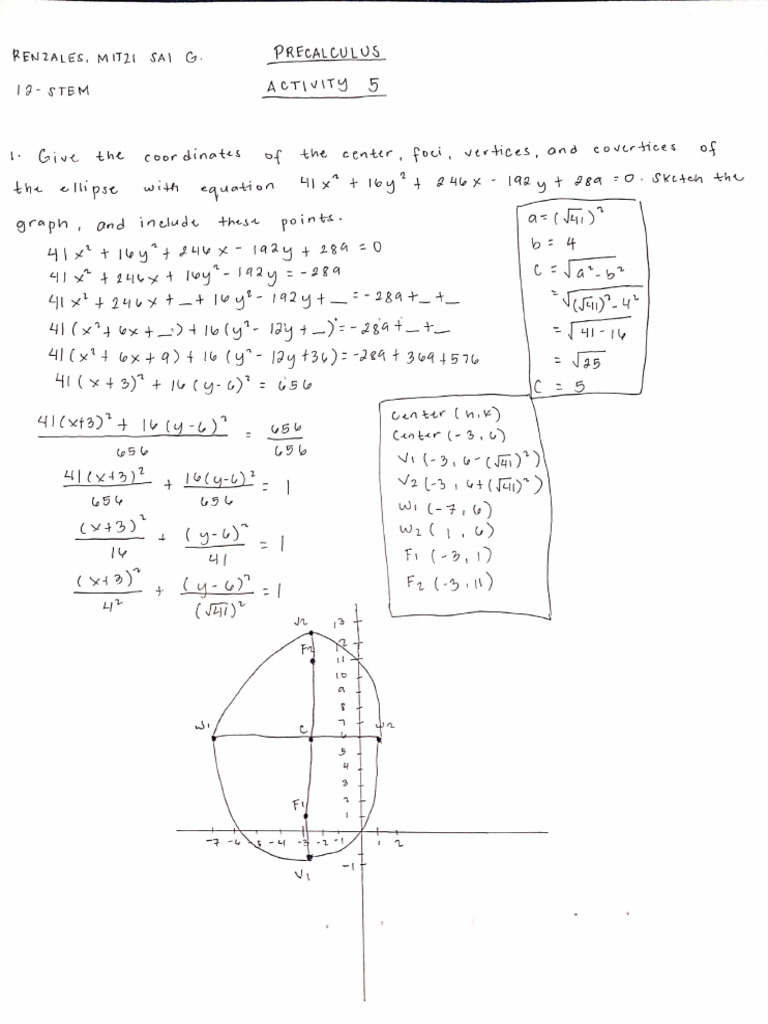 RENZALES, MITZI SAI G.
PRECALCULUS
12- STEM
ACTIVITY 5
1. Give the coordinates of the center, foci, vertices, and covertices of
the ellipse with equation 41x² + 16y² + 246x - 192y + 289 = 0. Sketch the
graph, and include these points.
41x² + 16y² + 246x - 192y + 289 = 0
41x² + 246x + 16y² - 192y = -289
41x² + 246x + _ + 16y² - 192y + _ = -289 + _ + _
41(x² + 6x + _) + 16(y² - 12y + _) = -289 + _ + _
41(x² + 6x + 9) + 16(y² - 12y + 36) = -289 + 369 + 576
41(x + 3)² + 16(y - 6)² = 656
41(x+3)² + 16(y-6)² / 656 = 656 / 656
41(x+3)² / 656 + 16(y-6)² / 656 = 1
(x+3)² / 16 + (y-6)² / 41 = 1
(x+3)² / 4² + (y-6)² / (√41)² = 1
a = (√41)²
b = 4
c = √a² - b²
= √(√41)² - 4²
= √41 - 16
= √25
c = 5
center (h, k)
center (-3, 6)
V1 (-3, 6 - (√41)²)
V2 (-3, 6 + (√41)²)
W1 (-7, 6)
W2 (1, 6)
F1 (-3, 1)
F2 (-3, 11)
V2
13
F2
12
11
10
9
8
W1
C
7
W2
6
5
4
3
F1
2
1
-7 -6 -5 -4 -3 -2 -1 1 2
V1
-1